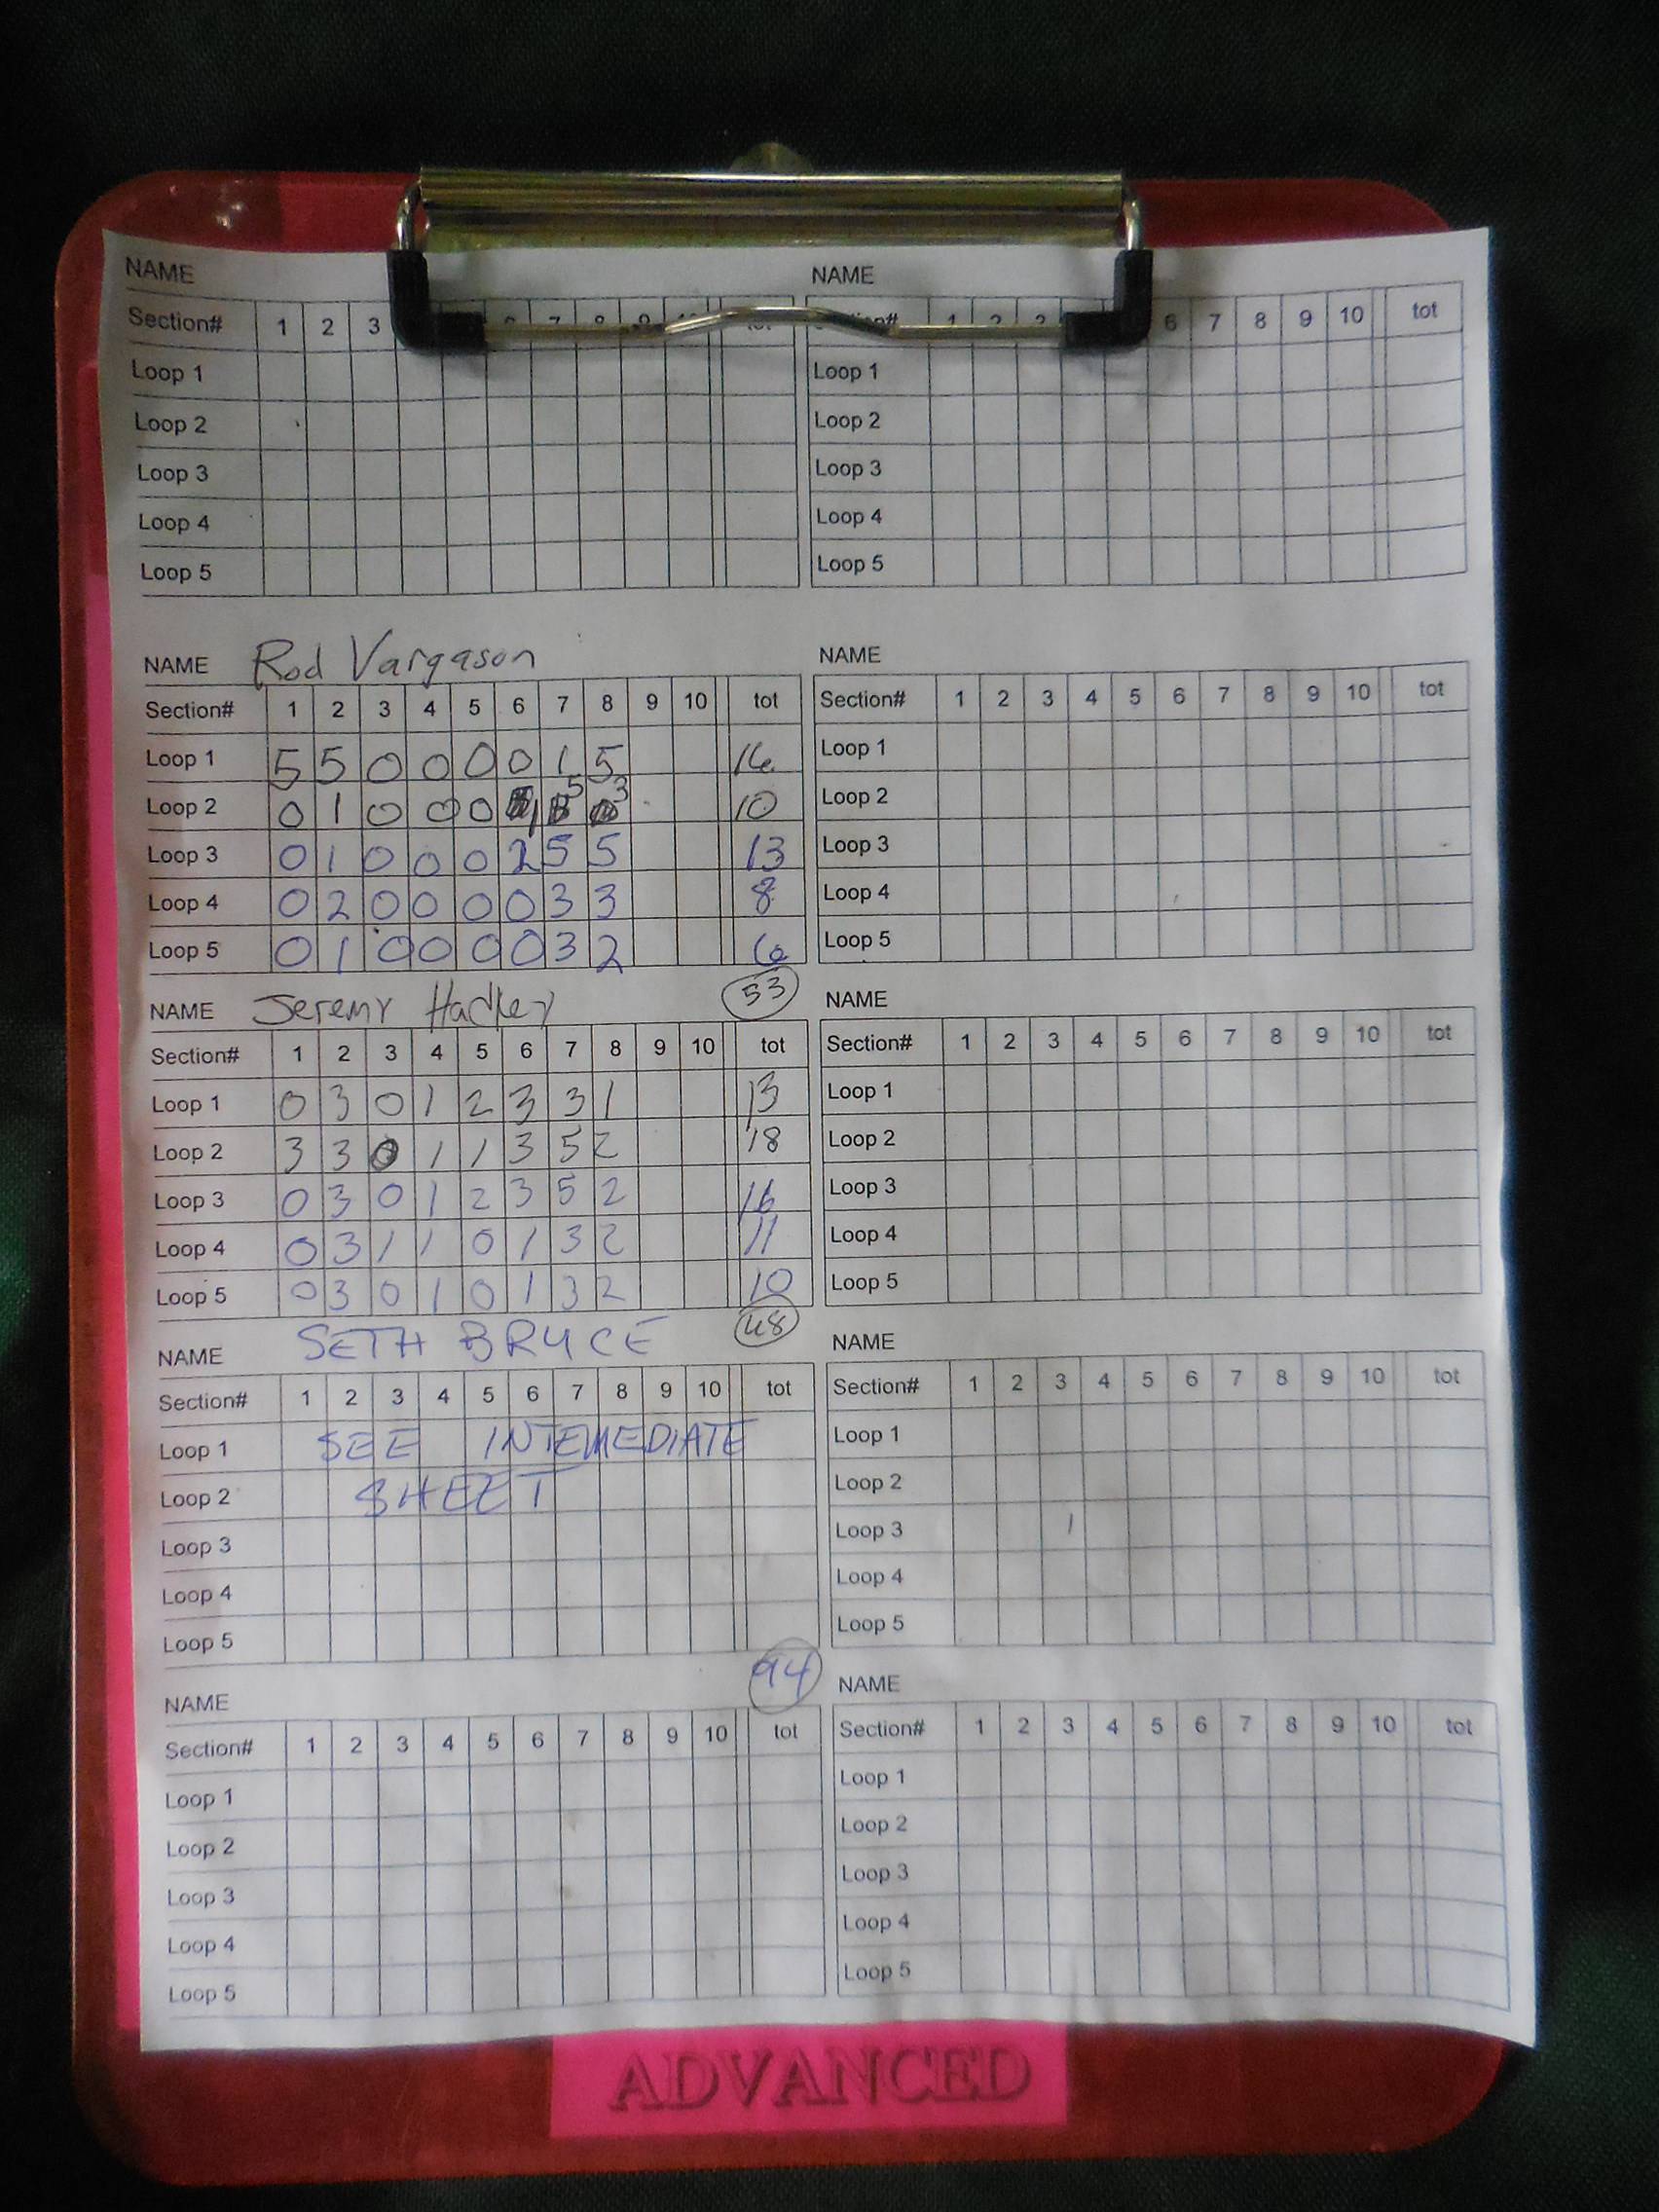 NAME
Section# 1 2 3
Loop 1
Loop 2
Loop 3
Loop 4
Loop 5
NAME
6 7 8 9 10 tot
Loop 1
Loop 2
Loop 3
Loop 4
Loop 5
NAME Rod Vargason
Section# 1 2 3 4 5 6 7 8 9 10 tot
Loop 1 5 5 0 0 0 0 1 5 16
Loop 2 0 1 0 0 0 1 5 3 10
Loop 3 0 1 0 0 0 2 5 5 13
Loop 4 0 2 0 0 0 0 3 3 8
Loop 5 0 1 0 0 0 0 3 2 6
53
NAME
Section# 1 2 3 4 5 6 7 8 9 10 tot
Loop 1
Loop 2
Loop 3
Loop 4
Loop 5
NAME Jeremy Hadley
Section# 1 2 3 4 5 6 7 8 9 10 tot
Loop 1 0 3 0 1 2 3 3 1 13
Loop 2 3 3 0 1 1 3 5 2 18
Loop 3 0 3 0 1 2 3 5 2 16
Loop 4 0 3 1 1 0 1 3 2 11
Loop 5 0 3 0 1 0 1 3 2 10
48
NAME
Section# 1 2 3 4 5 6 7 8 9 10 tot
Loop 1
Loop 2
Loop 3
Loop 4
Loop 5
NAME SETH BRYCE
Section# 1 2 3 4 5 6 7 8 9 10 tot
Loop 1 SEE INTEMEDIATE
Loop 2 SHEET
Loop 3
Loop 4
Loop 5
94
NAME
Section# 1 2 3 4 5 6 7 8 9 10 tot
Loop 1
Loop 2
Loop 3 1
Loop 4
Loop 5
NAME
Section# 1 2 3 4 5 6 7 8 9 10 tot
Loop 1
Loop 2
Loop 3
Loop 4
Loop 5
NAME
Section# 1 2 3 4 5 6 7 8 9 10 tot
Loop 1
Loop 2
Loop 3
Loop 4
Loop 5
ADVANCED